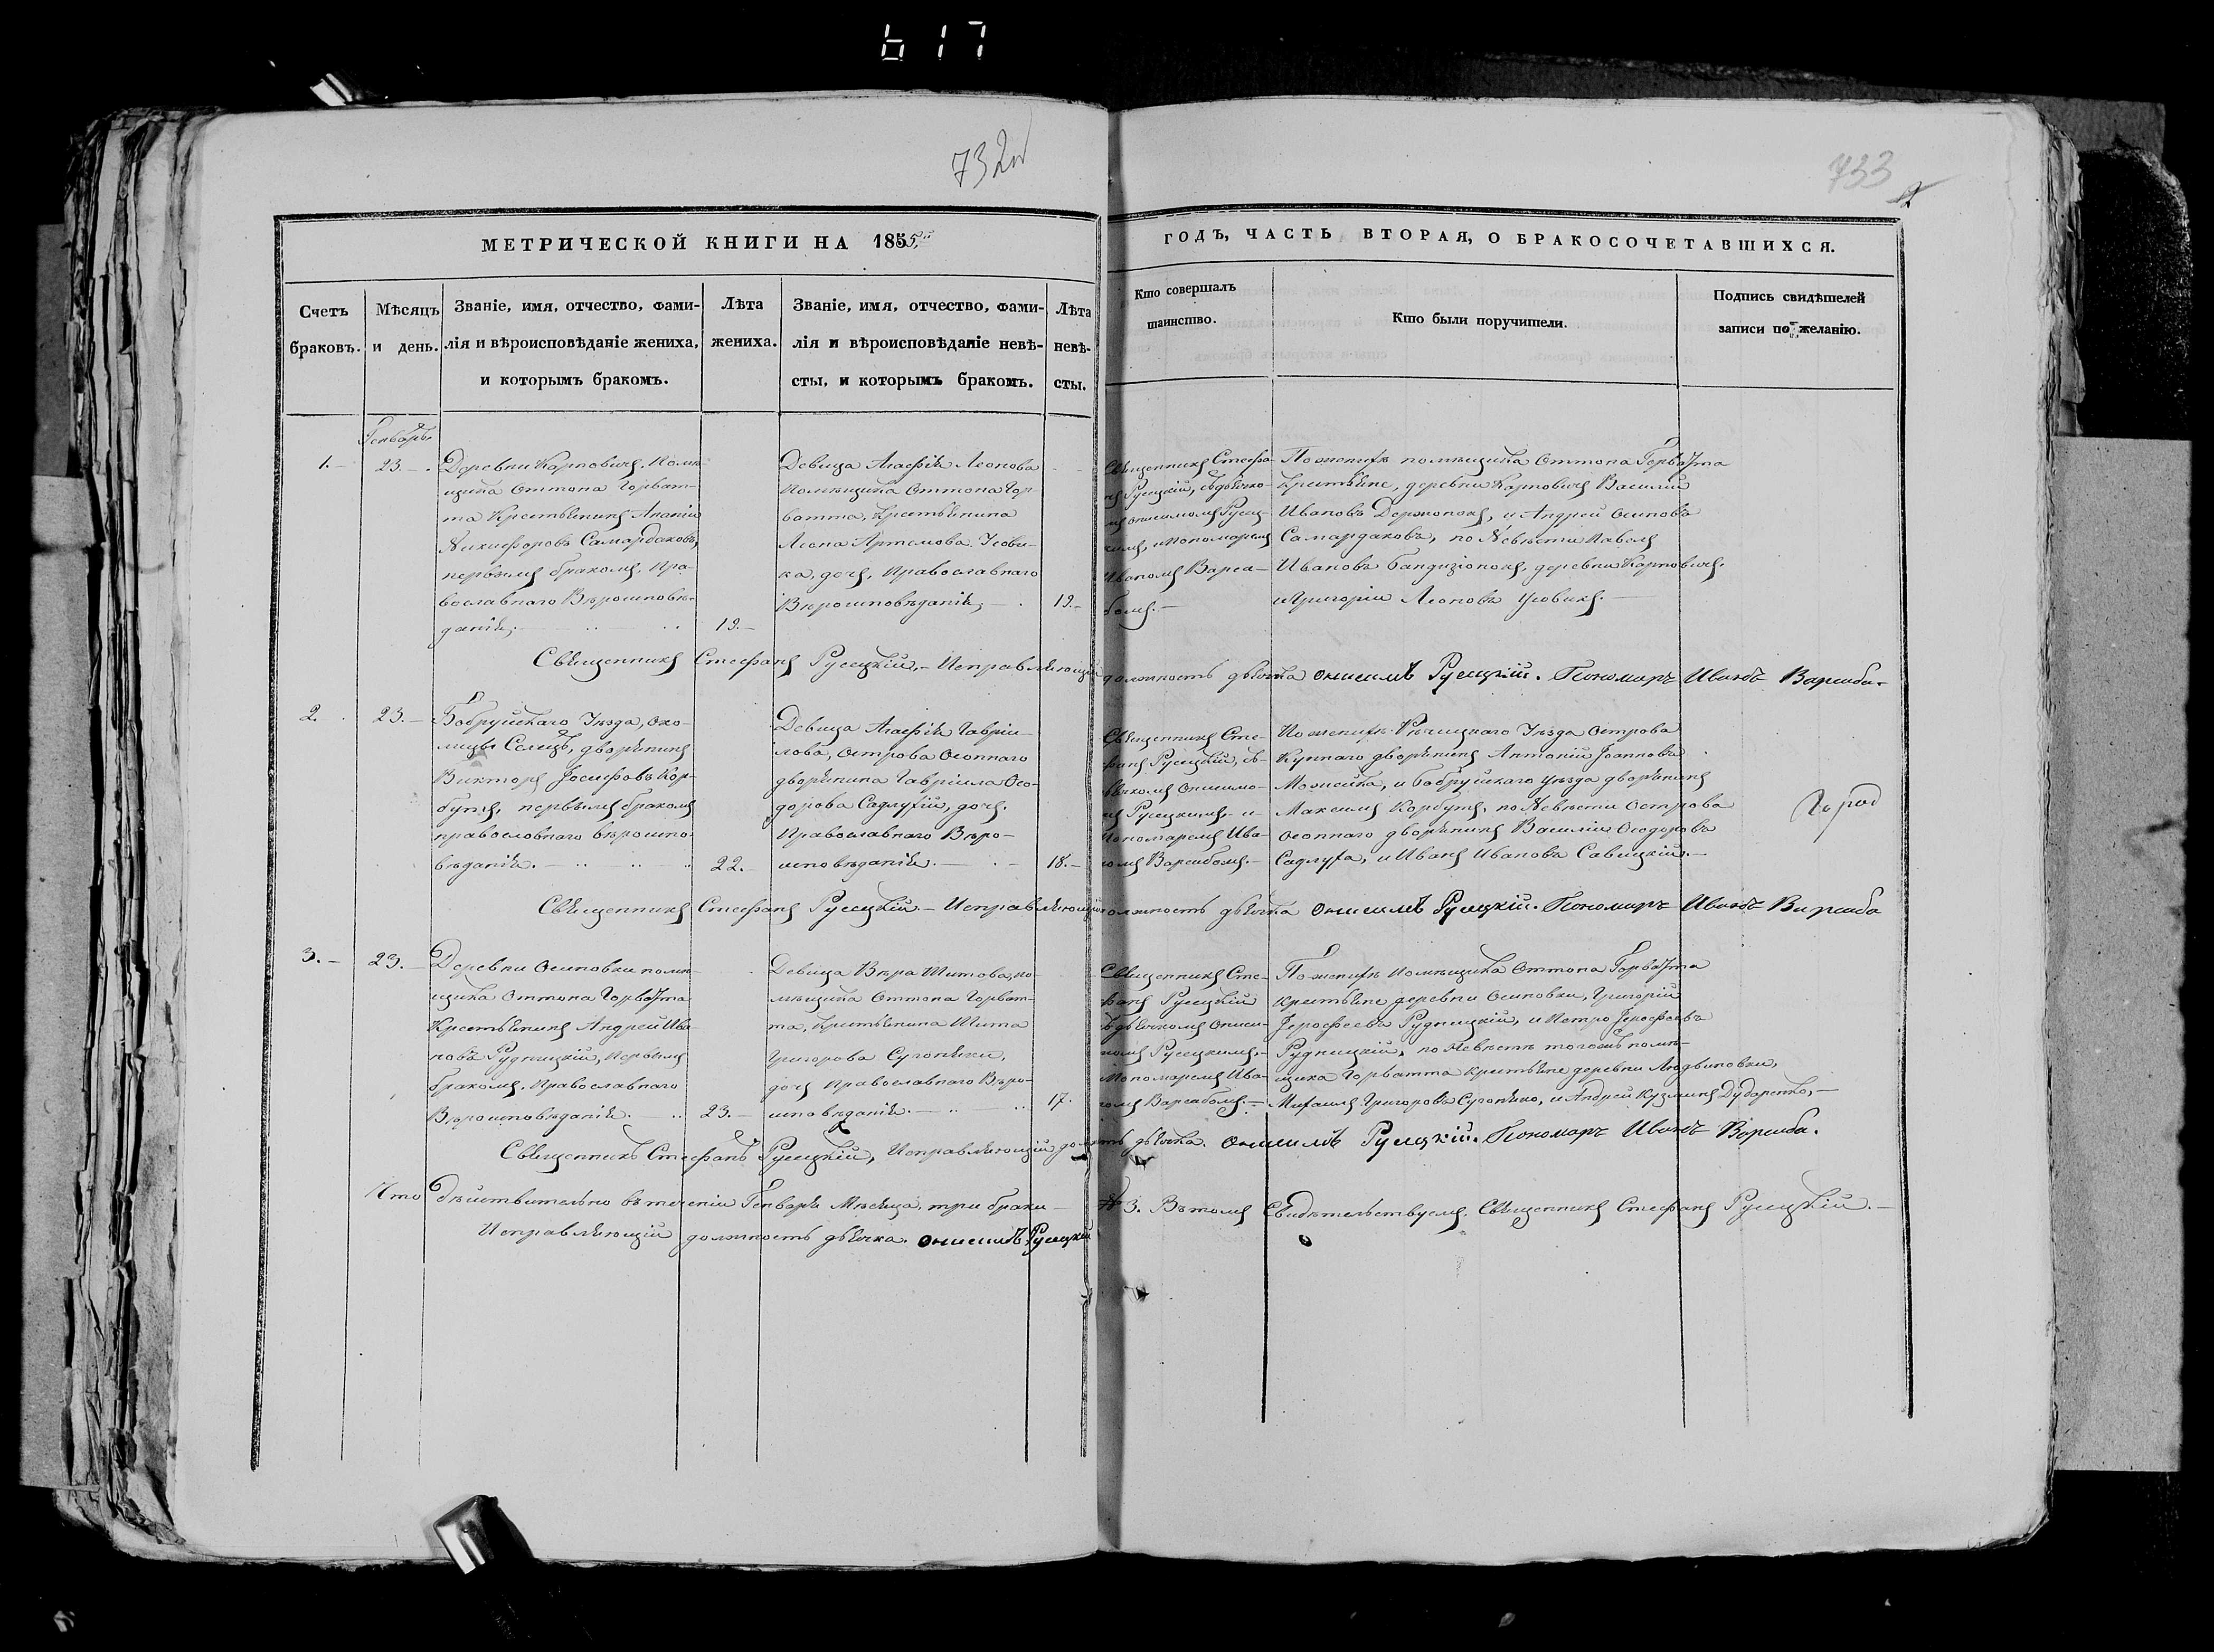 617
732
733
МЕТРИЧЕСКОЙ КНИГИ НА 1855
ГОДЪ, ЧАСТЬ ВТОРАЯ, О БРАКОСОЧЕТАВШИХСЯ.
Счетъ
браковъ.
Мѣсяцъ
и день.
Званіе, имя, отчество, фами-
лія и вѣроисповѣданіе жениха,
и которымъ бракомъ.
Лѣта
жениха.
Званіе, имя, отчество, фами-
лія и вѣроисповѣданіе невѣ-
сты, и которымъ бракомъ.
Лѣта
невѣ-
сты.
Кто совершалъ
таинство.
Кто были поручители.
Подпись свидѣтелей
записи по желанію.
Генварь
1.
23.
Деревни Карповичъ, помѣ-
щика Оттона Горват-
та Крестьянинъ Ананій
Никифоровъ Самардаковъ,
первымъ бракомъ, пра-
вославнаго Вѣроисповѣ-
данія,
19.
Девица Агафія Леонова
помѣщика Оттона Гор-
ватта, Крестьянина
Леона Артемова
ка, дочь, православнаго
Вѣроисповѣданія,
19.
Священникъ Стефа-
нъ Русецкій, съ дьячко-
мъ Онисимомъ Русец-
кимъ, и Пономаремъ
Иваномъ Варса-
бомъ.
По женихѣ помѣщика Оттона Горватта
Крестьяне, деревни Карповичъ Василій
Ивановъ, и Андрей Осиповъ
Самардаковъ, по Невѣсти Павелъ
Ивановъ, деревни Карповичъ,
и Григорій Леоновъ
Священникъ Стефанъ Русецкій, Исправляющій должность дьячка Онисимъ Русецкій. Пономарь Иванъ Варсаба.
2.
23.
Бобруйскаго Уѣзда, око-
лицы Селецъ, дворянинъ
Викторъ Іосифовъ Кор-
бутъ, первымъ бракомъ
православнаго вѣроиспо-
вѣданія.
22.
Девица Агафія Гаврии-
лова, Острова Осоннаго
дворянина Гавріила Ѳео-
дорова Садлухи, дочь,
Православнаго Вѣро-
исповѣданія.
18.
Священникъ Сте-
фанъ Русецкій, съ
дьячкомъ Онисимо-
мъ Русецкимъ, и
Пономаремъ Ива-
номъ Варсабомъ.
По женихѣ Рѣчицкаго Уѣзда Острова
дворянинъ Антоній Іоанновъ
Можейка, и Бобруйскаго Уѣзда дворянинъ
Максимъ Корбутъ, по Невѣсти Острова
Осоннаго дворянинъ Василій Ѳеодоровъ
Садлуха, и Иванъ Ивановъ Савицкій.
Священникъ Стефанъ Русецкій. Исправляющій должность дьячка Онисимъ Русецкій. Пономарь Иванъ Варсаба
3.
23.
Деревни Осиповки помѣ-
щика Оттона Горватта
Крестьянинъ Андрей Ива-
новъ Рудницкій, Первымъ
бракомъ, Православнаго
Вѣроисповѣданія.
23.
Девица Вѣра Титова, по-
мѣщика Оттона Горват-
та, Крестьянина Тита
Григорова
дочь Православнаго Вѣро-
исповѣданія.
17.
Священникъ Сте-
фанъ Русецкій
съ дьячкомъ Ониси-
момъ Русецкимъ,
Пономаремъ Ива-
номъ Варсабомъ.
По женихѣ помѣщика Оттона Горватта
крестьяне деревни Осиповки, Григорій
Іерофеевъ Рудницкій, и Петро Іерофеевъ
Рудницкій, по Невѣстѣ тогожъ помѣ-
щика Горватта крестьяне деревни Людвиновки,
Михаилъ Григоровъ, и Андрей Кузминъ Дударенко,
Священникъ Стефанъ Русецкій, Исправляющій должность дьячка. Онисимъ Русецкій. Пономарь Иванъ Варсаба.
Что дѣйствительно въ теченіи Генваря Мѣсяца, три браки № 3. Въ томъ Свидѣтельствуемъ. Священникъ Стефанъ Русецкій.
Исправляющій должность дьячка. Онисимъ Русецкій